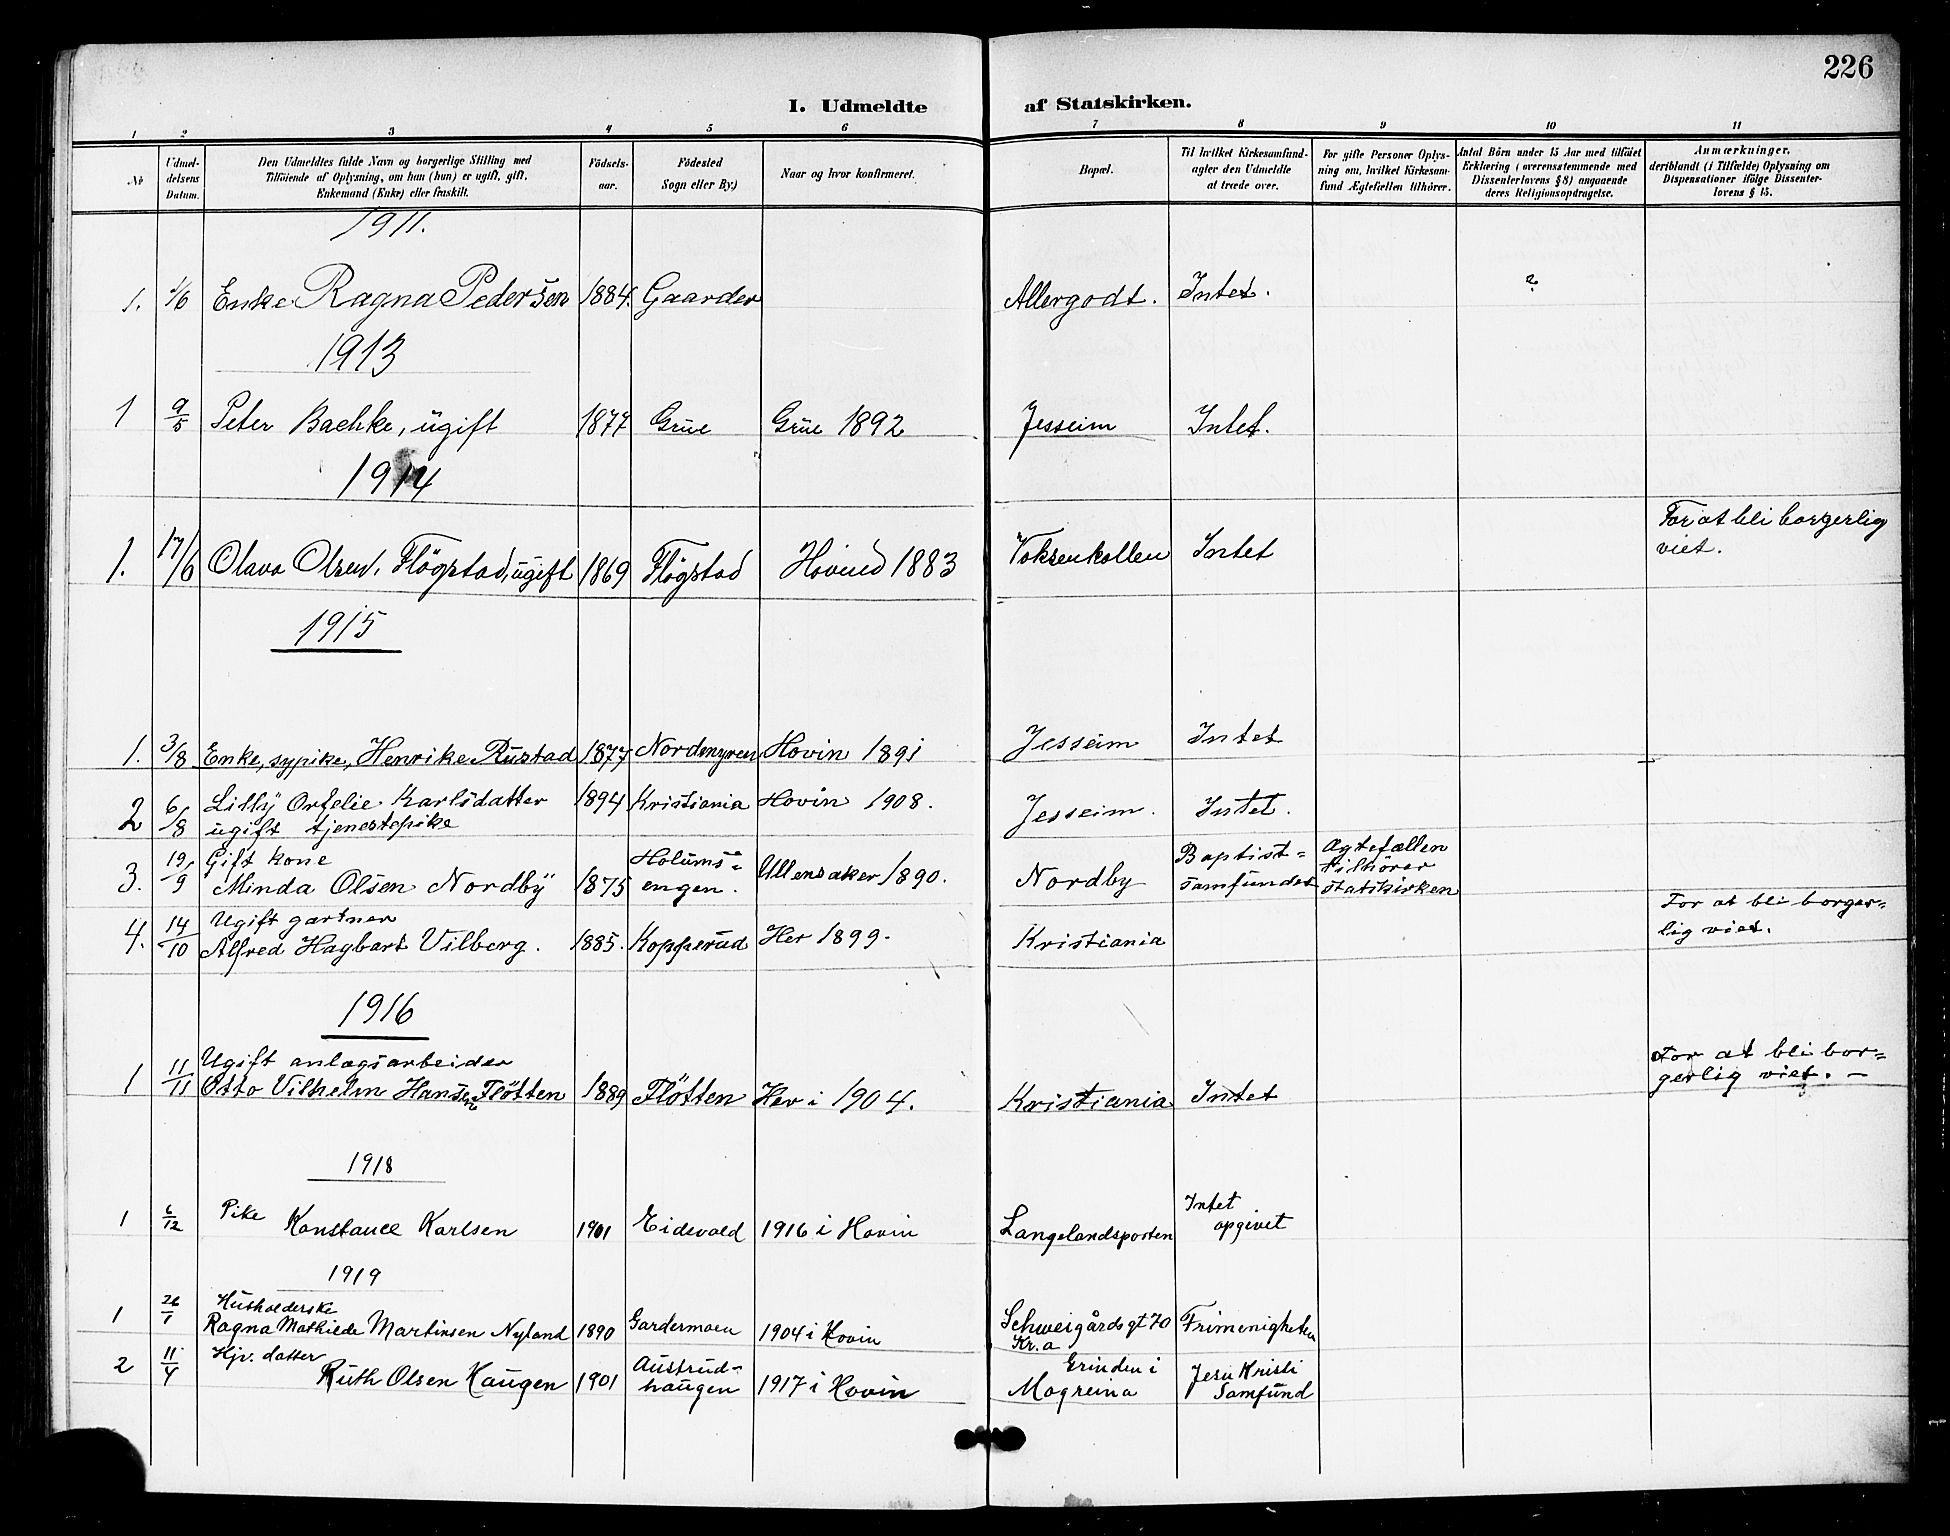 226
I. Udmeldte af Statskirken.
1 2 3 4 5 6 7 8 9 10 11
No
Udmeldelsens Datum.
Den Udmeldtes fulde Navn og borgerlige Stilling med
Tilföiende af Oplysning, om han (hun) er ugift, gift,
Enkemand (Enke) eller fraskilt.
Födselsaar.
Födested
Sogn eller By.)
Naar og hvor konfirmeret.
Bopæl.
Til hvilket Kirkesamfund-
agter den Udmeldte
at træde over.
For gifte Personer Oplys-
ning om, hvilket Kirkesam-
fund Ægtefællen tilhörer.
Antal Börn under 15 Aar med tilföiet
Erklæring i overensstemmende med
Dissenterlovens § 8) angaaende
deres Religionsopdragelse.
Anmærkninger,
deriblandt (i Tilfælde) Oplysning om
Dispensationer ifölge Dissenter-
lovens § 15.
1911.
1. 1/6 Enke Ragna Pedersen 1884. Gaarder Allergodt. Intet. ?
1913
1 9/5 Peter Bachke, ugift 1877 Grue Grue 1892 Jesseim Intet.
1914
1. 17/6 Olava Olsen, Flögstad, ugift 1869 Flögstad Hovind 1883 Voksenkollen Intet For at bli borgerlig
viet.
1915
1. 3/8 Enke, sypike, Henrike Rustad 1877 Nordmyren Hovin 1891 Jesseim Intet
2 6/8 Lilly Orfelie Karlsdatter 1894 Kristiania Hovin 1908. Jesseim. Intet.
ugift tjenestepike
3. 19/9 Gift kone
Minda Olsen Nordby 1875 Holums=
engen. Ullensaker 1890. Nordby Baptist=
samfundet Ægtefællen
tilhører
statskirken
4. 14/10 Ugift gartner
Alfred Hagbart Vilberg. 1885. Kopperud Her 1899. Kristiania For at bli borger=
lig viet.
1916
1 11/11 Ugift anlægsarbeider
Otto Vilhelm Hansen Fløtten 1889 Fløtten Her i 1904. Kristiania Intet For at bli bor=
gerlig viet. –
1918
1 6/12 Pike
Konstance Karlsen 1901 Eidsvold 1916 i Hovin Langelandsporten Intet
opgivet
1919
1 26/1 Husholderske
Ragna Mathilde Martinsen Nyland 1890 Gardermoen 1904 i Hovin Schweigårds gt 70
Kr.a Frimenigheten
2 11/4 Hjv. datter
Ruth Olsen Haugen 1901 Austrud-
haugen 1917 i Hovin Erinden i
Mogreina Jesu Kristi
Samfund